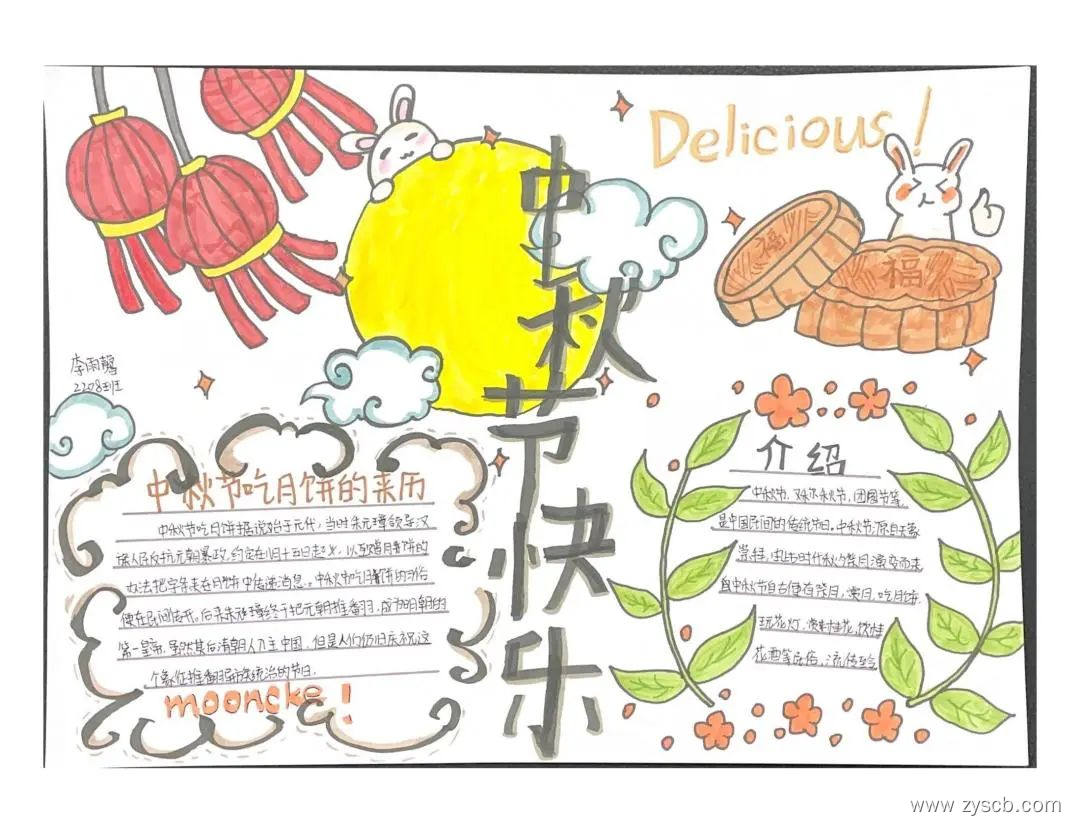 Delicious!
福
福
中秋节快乐
李雨馨
2208班
中秋节吃月饼的来历
中秋节吃月饼据说始于元代，当时朱元璋领导汉
族人民反抗元朝暴政，约定在八月十五日起义，以互赠月饼的
办法把字条夹在月饼中传递消息。中秋节吃月饼的习俗
便在民间传开。后来朱元璋终于把元朝推翻，成为明朝的
第一皇帝，虽然其后清朝人入主中国，但是人们仍旧庆祝这
个象征推翻异族统治的节日.
mooncke!
介绍
中秋节、又称秋节、团圆节等，
是中国民间的传统节日。中秋节源自天象
崇拜，由上古时代秋夕祭月演变而来
自中秋节自古便有祭月、赏月、吃月饼、
玩花灯、赏桂花、饮桂
花酒等民俗，流传至今
www.zyscb.com